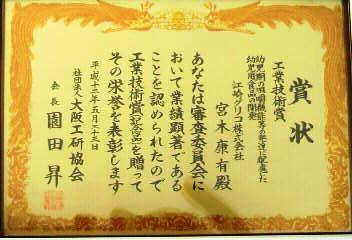 賞状
工業技術賞
幼児期の咀嚼機能等の発達に配慮した
幼児用食品の開発
江崎グリコ株式会社
宮木康有殿
あなたは審査委員会に
おいて業績顕著である
ことを認められたので
工業技術賞(記念品)を贈って
その栄誉を表彰します
平成十三年五月二十三日
社団法人大阪工研協会
会長 園田昇